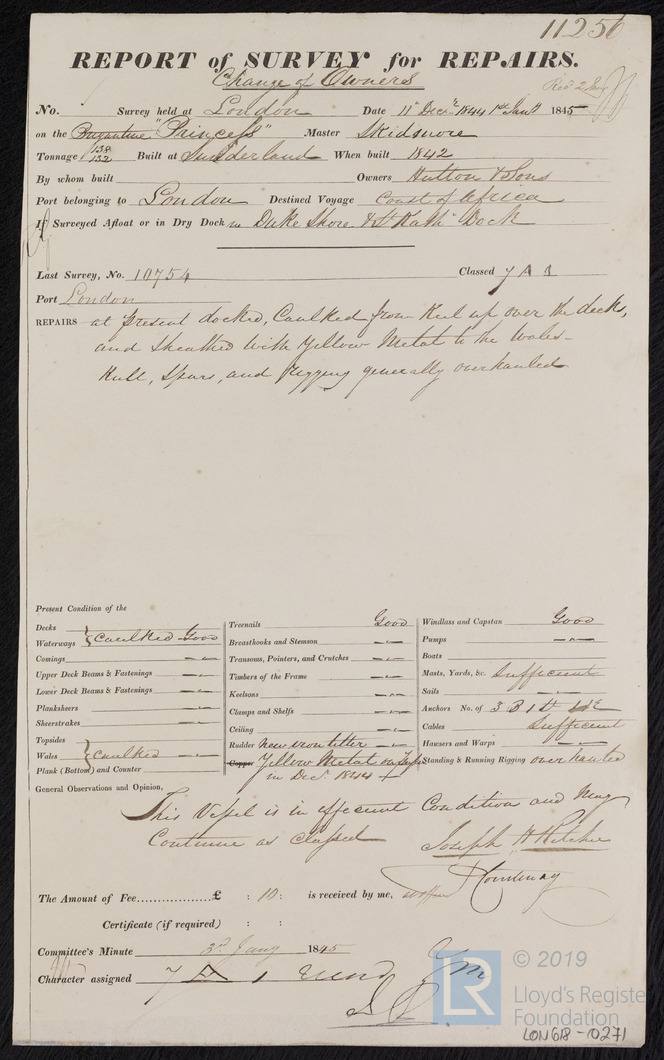 11256
REPORT of SURVEY for REPAIRS.
Change of Owners
No. Survey held at London Date 11 Decr. 1844 1st Jany 1845
on the Brigantine "Princess" Master Skidmore
Tonnage 138 132 Built at Sunderland When built 1842
By whom built Owners Hutton & Sons
Port belonging to London Destined Voyage Coast of Africa
If Surveyed Afloat or in Dry Dock in Duke Shore & St Kath Dock
Last Survey, No. 10754 Classed 7 A 1
Port London
REPAIRS at present docked, Caulked from Keel up over the decks,
and Sheathed with Yellow Metal to the Wales-
Hull, Spars, and Rigging generally overhauled
Present Condition of the
Decks
Waterways } Caulked Good
Comings
Upper Deck Beams & Fastenings
Lower Deck Beams & Fastenings
Planksheers
Sheerstrakes
Topsides
Wales } Caulked
Plank (Bottom) and Counter
Treenails Good
Breasthooks and Stemson
Transoms, Pointers, and Crutches
Timbers of the Frame
Keelsons
Clamps and Shelfs
Ceiling
Rudder New iron tiller
Copper Yellow Metal on
in Decr. 1844
Windlass and Capstan Good
Pumps
Boats
Masts, Yards, &c. Sufficient
Sails
Anchors No. of 3 B 1 St
Cables Sufficient
Hawsers and Warps
Standing & Running Rigging overhauled
General Observations and Opinion,
This Vessel is in efficient Condition and may
Continue as classed Joseph H Ritchie
Courtenay
The Amount of Fee..................£ : 10 : is received by me,
Certificate (if required) : :
Committee's Minute 3rd Jany 1845
Character assigned 7 A 1
LR
© 2019
Lloyd's Register
Foundation
LON618-0271